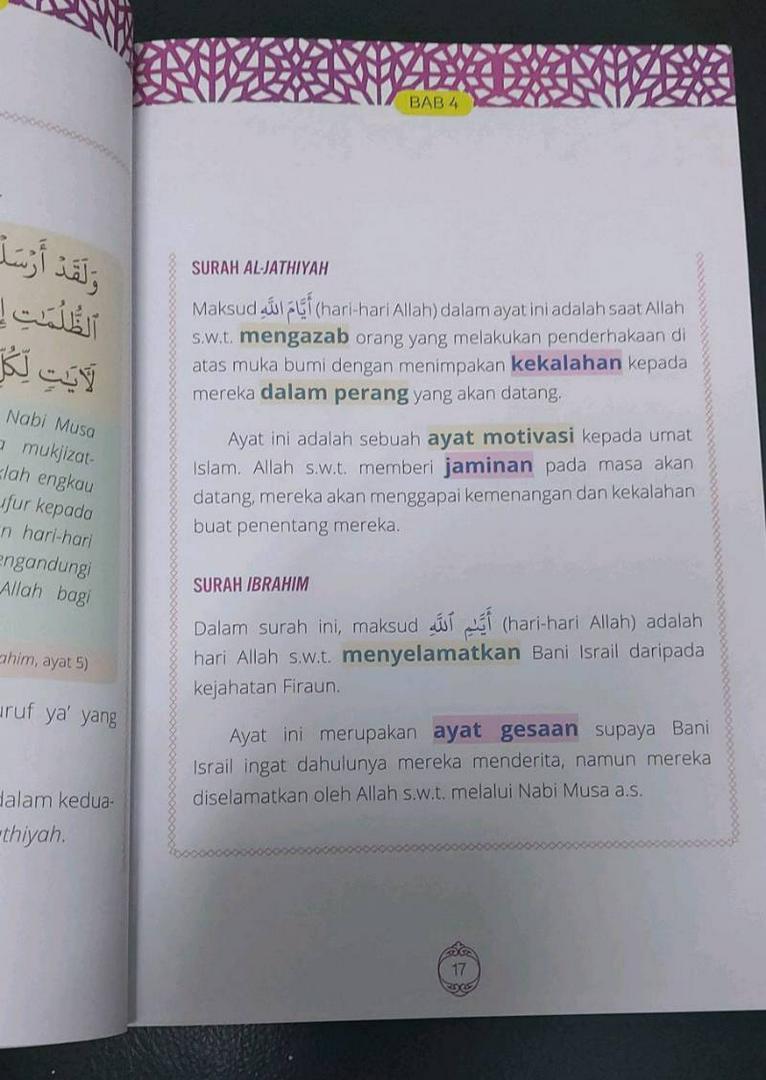 وَلَقَدْ أَرْسَلْ
ٱلظُّلُمَٰتِ إِ
لَآيَٰتٍ لِّكُلِّ
Nabi Musa
a mukjizat-
lah engkau
ufur kepada
n hari-hari
engandungi
Allah bagi
ahim, ayat 5)
uruf ya' yang
dalam kedua-
thiyah.
BAB 4
SURAH AL-JATHIYAH
Maksud أَيَّامَ ٱللَّهِ (hari-hari Allah) dalam ayat ini adalah saat Allah
s.w.t. mengazab orang yang melakukan penderhakaan di
atas muka bumi dengan menimpakan kekalahan kepada
mereka dalam perang yang akan datang.
Ayat ini adalah sebuah ayat motivasi kepada umat
Islam. Allah s.w.t. memberi jaminan pada masa akan
datang, mereka akan menggapai kemenangan dan kekalahan
buat penentang mereka.
SURAH IBRAHIM
Dalam surah ini, maksud أَيَّىٰمِ ٱللَّهِ (hari-hari Allah) adalah
hari Allah s.w.t. menyelamatkan Bani Israil daripada
kejahatan Firaun.
Ayat ini merupakan ayat gesaan supaya Bani
Israil ingat dahulunya mereka menderita, namun mereka
diselamatkan oleh Allah s.w.t. melalui Nabi Musa a.s.
17